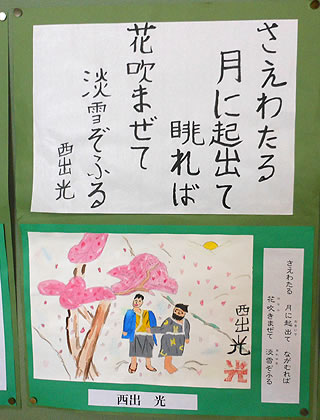 さえわたる
月に起出て
眺れば
花吹まぜて
淡雪ぞふる
西出光
西出光
光
さえわたる　月に起出て　ながむれば
花吹きまぜて　淡雪ぞふる
西出　光